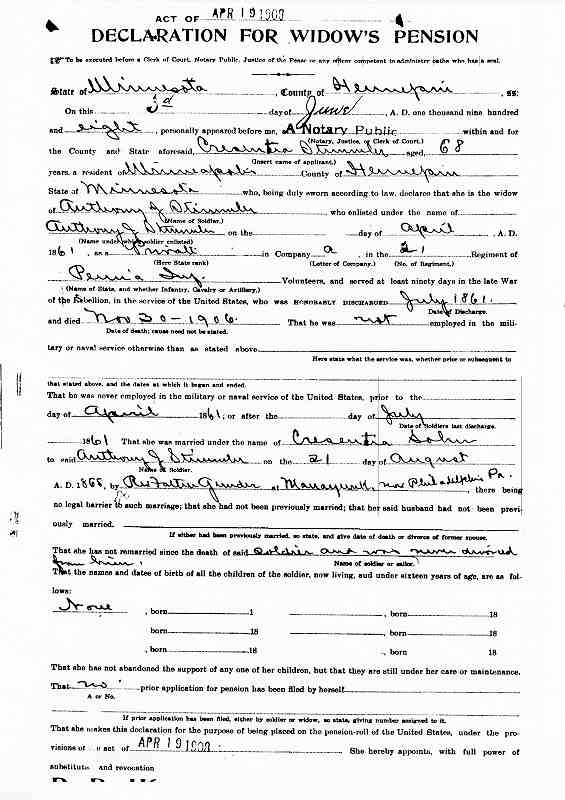 ACT OF APR 19 1908
DECLARATION FOR WIDOW'S PENSION
To be executed before a Clerk of Court, Notary Public, Justice of the Peace or any officer competent to administer oaths who has a seal.
State of Minnesota, County of Hennepin, ss:
On this 3d day of June, A. D. one thousand nine hundred
and eight, personally appeared before me, a A Notary Public within and for
(Notary, Justice, or Clerk of Court.)
the County and State aforesaid, Cresentia Stimmler aged, 68
(Insert name of applicant.)
years, a resident of Minneapolis County of Hennepin
State of Minnesota who, being duly sworn according to law, declares that she is the widow
of Anthony J Stimmler who enlisted under the name of
(Name of Soldier.)
Anthony J Stimmler on the day of April, A. D.
(Name under which soldier enlisted)
1861, as a Privatt in Company a, in the 21 Regiment of
(Here State rank) (Letter of Company.) (No. of Regiment.)
Penn'a Inf. Volunteers, and served at least ninety days in the late War
(Name of State, and whether Infantry, Cavalry or Artillery.)
of the Rebellion, in the service of the United States, who was HONORABLY DISCHARGED July 1861.
Date of Discharge.
and died Nov 30-1906. That he was not employed in the mili-
Date of death; cause need not be stated.
tary or naval service otherwise than as stated above
Here state what the service was, whether prior or subsequent to
that stated above, and the dates at which it began and ended.
That he was never employed in the military or naval service of the United States, prior to the
day of April 1861; or after the day of July
Date of Soldiers last discharge.
1861 That she was married under the name of Cresentia Sohm
to said Anthony J Stimmler on the 21 day of August
Name of Soldier.
A. D. 1868, by Rev Father at Manayunk, near Philadelphia Pa., there being
no legal barrier to such marriage; that she had not been previously married; that her said husband had not been previ-
ously married.
If either had been previously married, so state, and give date of death or divorce of former spouse.
That she has not remarried since the death of said soldier and was never divorced
Name of soldier or sailor.
from him.
That the names and dates of birth of all the children of the soldier, now living, and under sixteen years of age, are as fol-
lows:
None, born 1 , born 18
, born 18 , born 18
, born 18 , born 18
That she has not abandoned the support of any one of her children, but that they are still under her care or maintenance.
That no prior application for pension has been filed by herself
A or No.
If prior application has been filed, either by soldier or widow, so state, giving number assigned to it.
That she makes this declaration for the purpose of being placed on the pension-roll of the United States, under the pro-
visions of act of APR 19 1908. She hereby appoints, with full power of
substitute and revocation